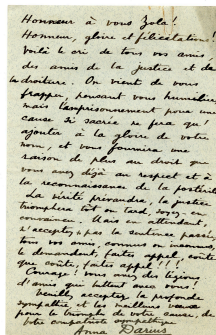 Honneur à vous Zola!
Honneur, gloire et félicitations!
Voilà le cri de tous vos amis
des amis de la justice et de
la droiture. On vient de vous
frapper, pensant vous humilier
mais l'emprisonnement pour une
cause si sacrée ne fera qu'
ajouter à la gloire de votre
nom, et vous fournira une
raison de plus au droit que
vous avez déjà au respect et à
la reconnaissance de la postérité
La vérité prévaudra, la justice
triomphera tôt ou tard, soyez-en
convaincu! Mais en attendant,
n'acceptez pas la sentence passée,
tous vos amis, connus ou inconnus,
le demandent, faites appel, coûte
que coûte, faites appel!!!
Courage! vous avez des légions
d'amis qui luttent avec vous!
Veuillez accepter la profonde
sympathie et les meilleurs vœux
pour le triomphe de votre cause, de
votre compatriote
Anna Darius